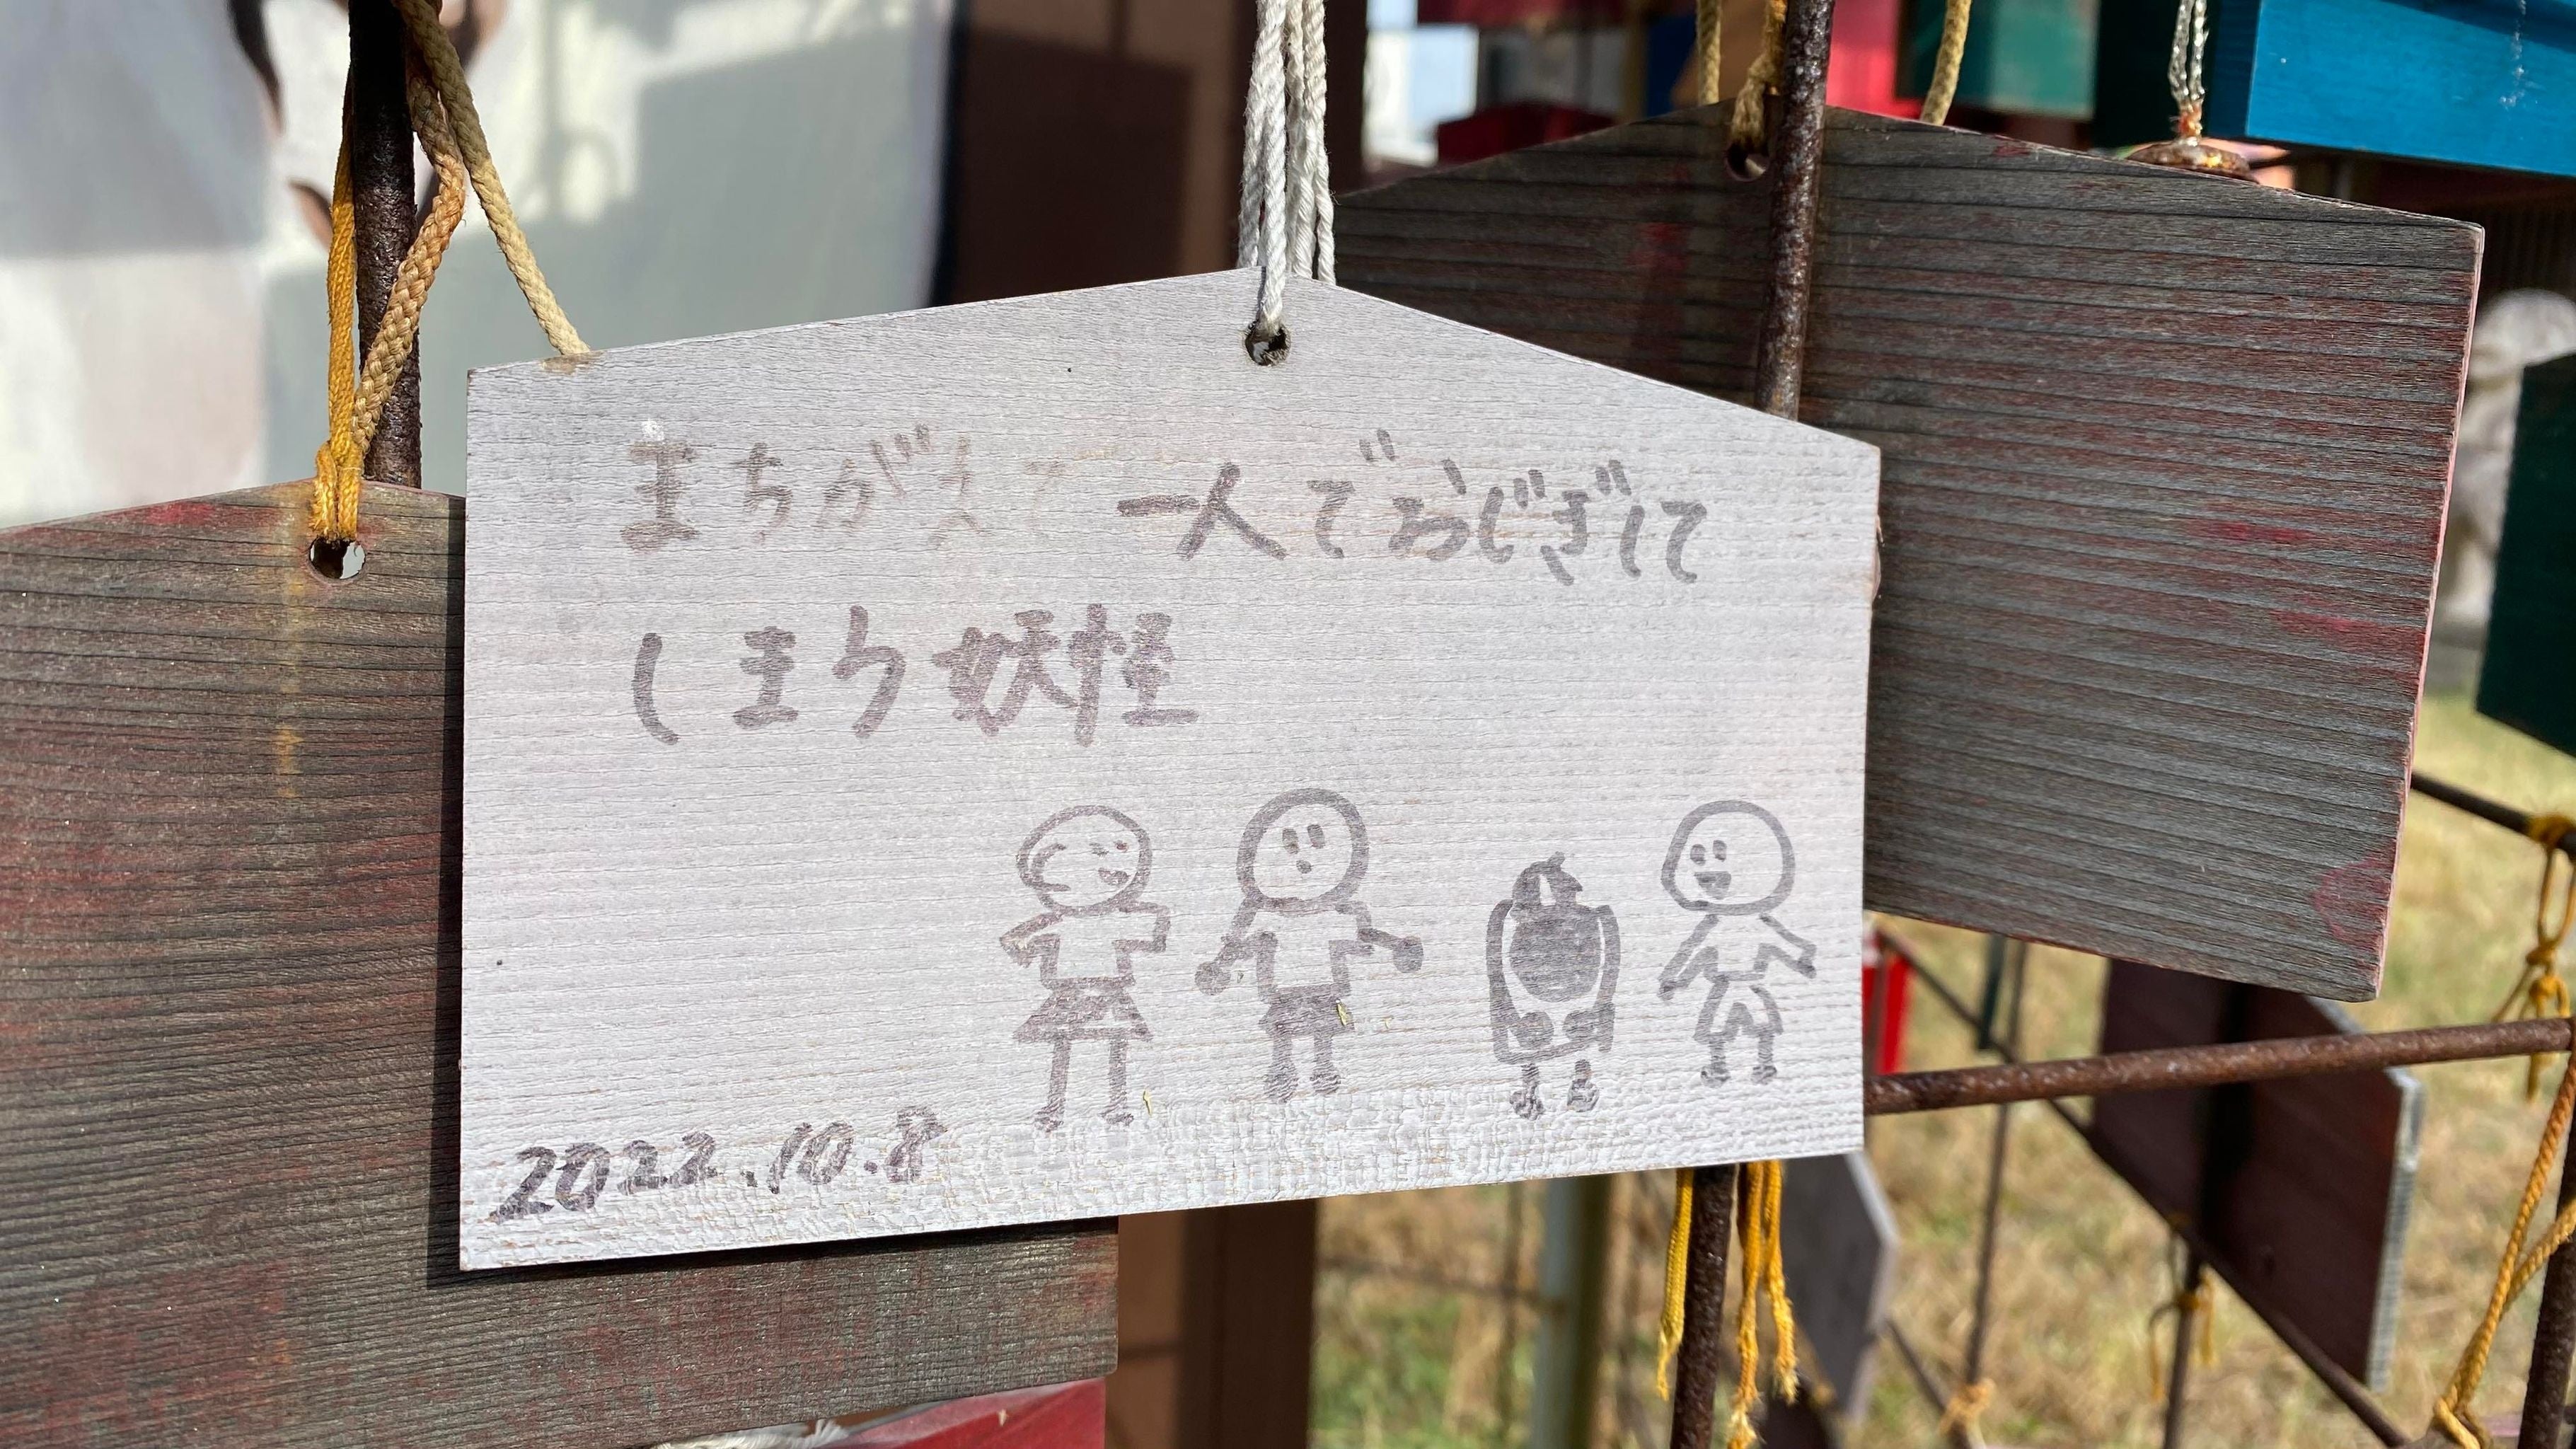 まちがえて一人でおじぎして
しまう妖怪
2022.10.8